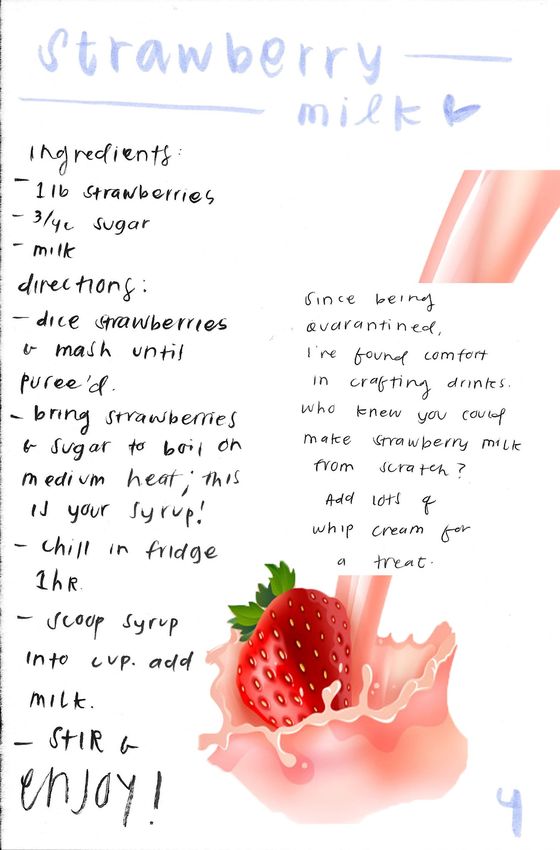 strawberry
milk
Ingredients:
- 1 lb strawberries
- 3/4c sugar
- milk
directions:
- dice strawberries
& mash until
puree'd.
- bring strawberries
& sugar to boil on
medium heat; this
is your syrup!
- chill in fridge
1hR.
- scoop syrup
into cup. add
milk.
- StIR &
enjoy!
since being
quarantined,
I've found comfort
in crafting drinks.
who knew you could
make strawberry milk
from scratch?
Add lots of
whip cream for
a treat.
4